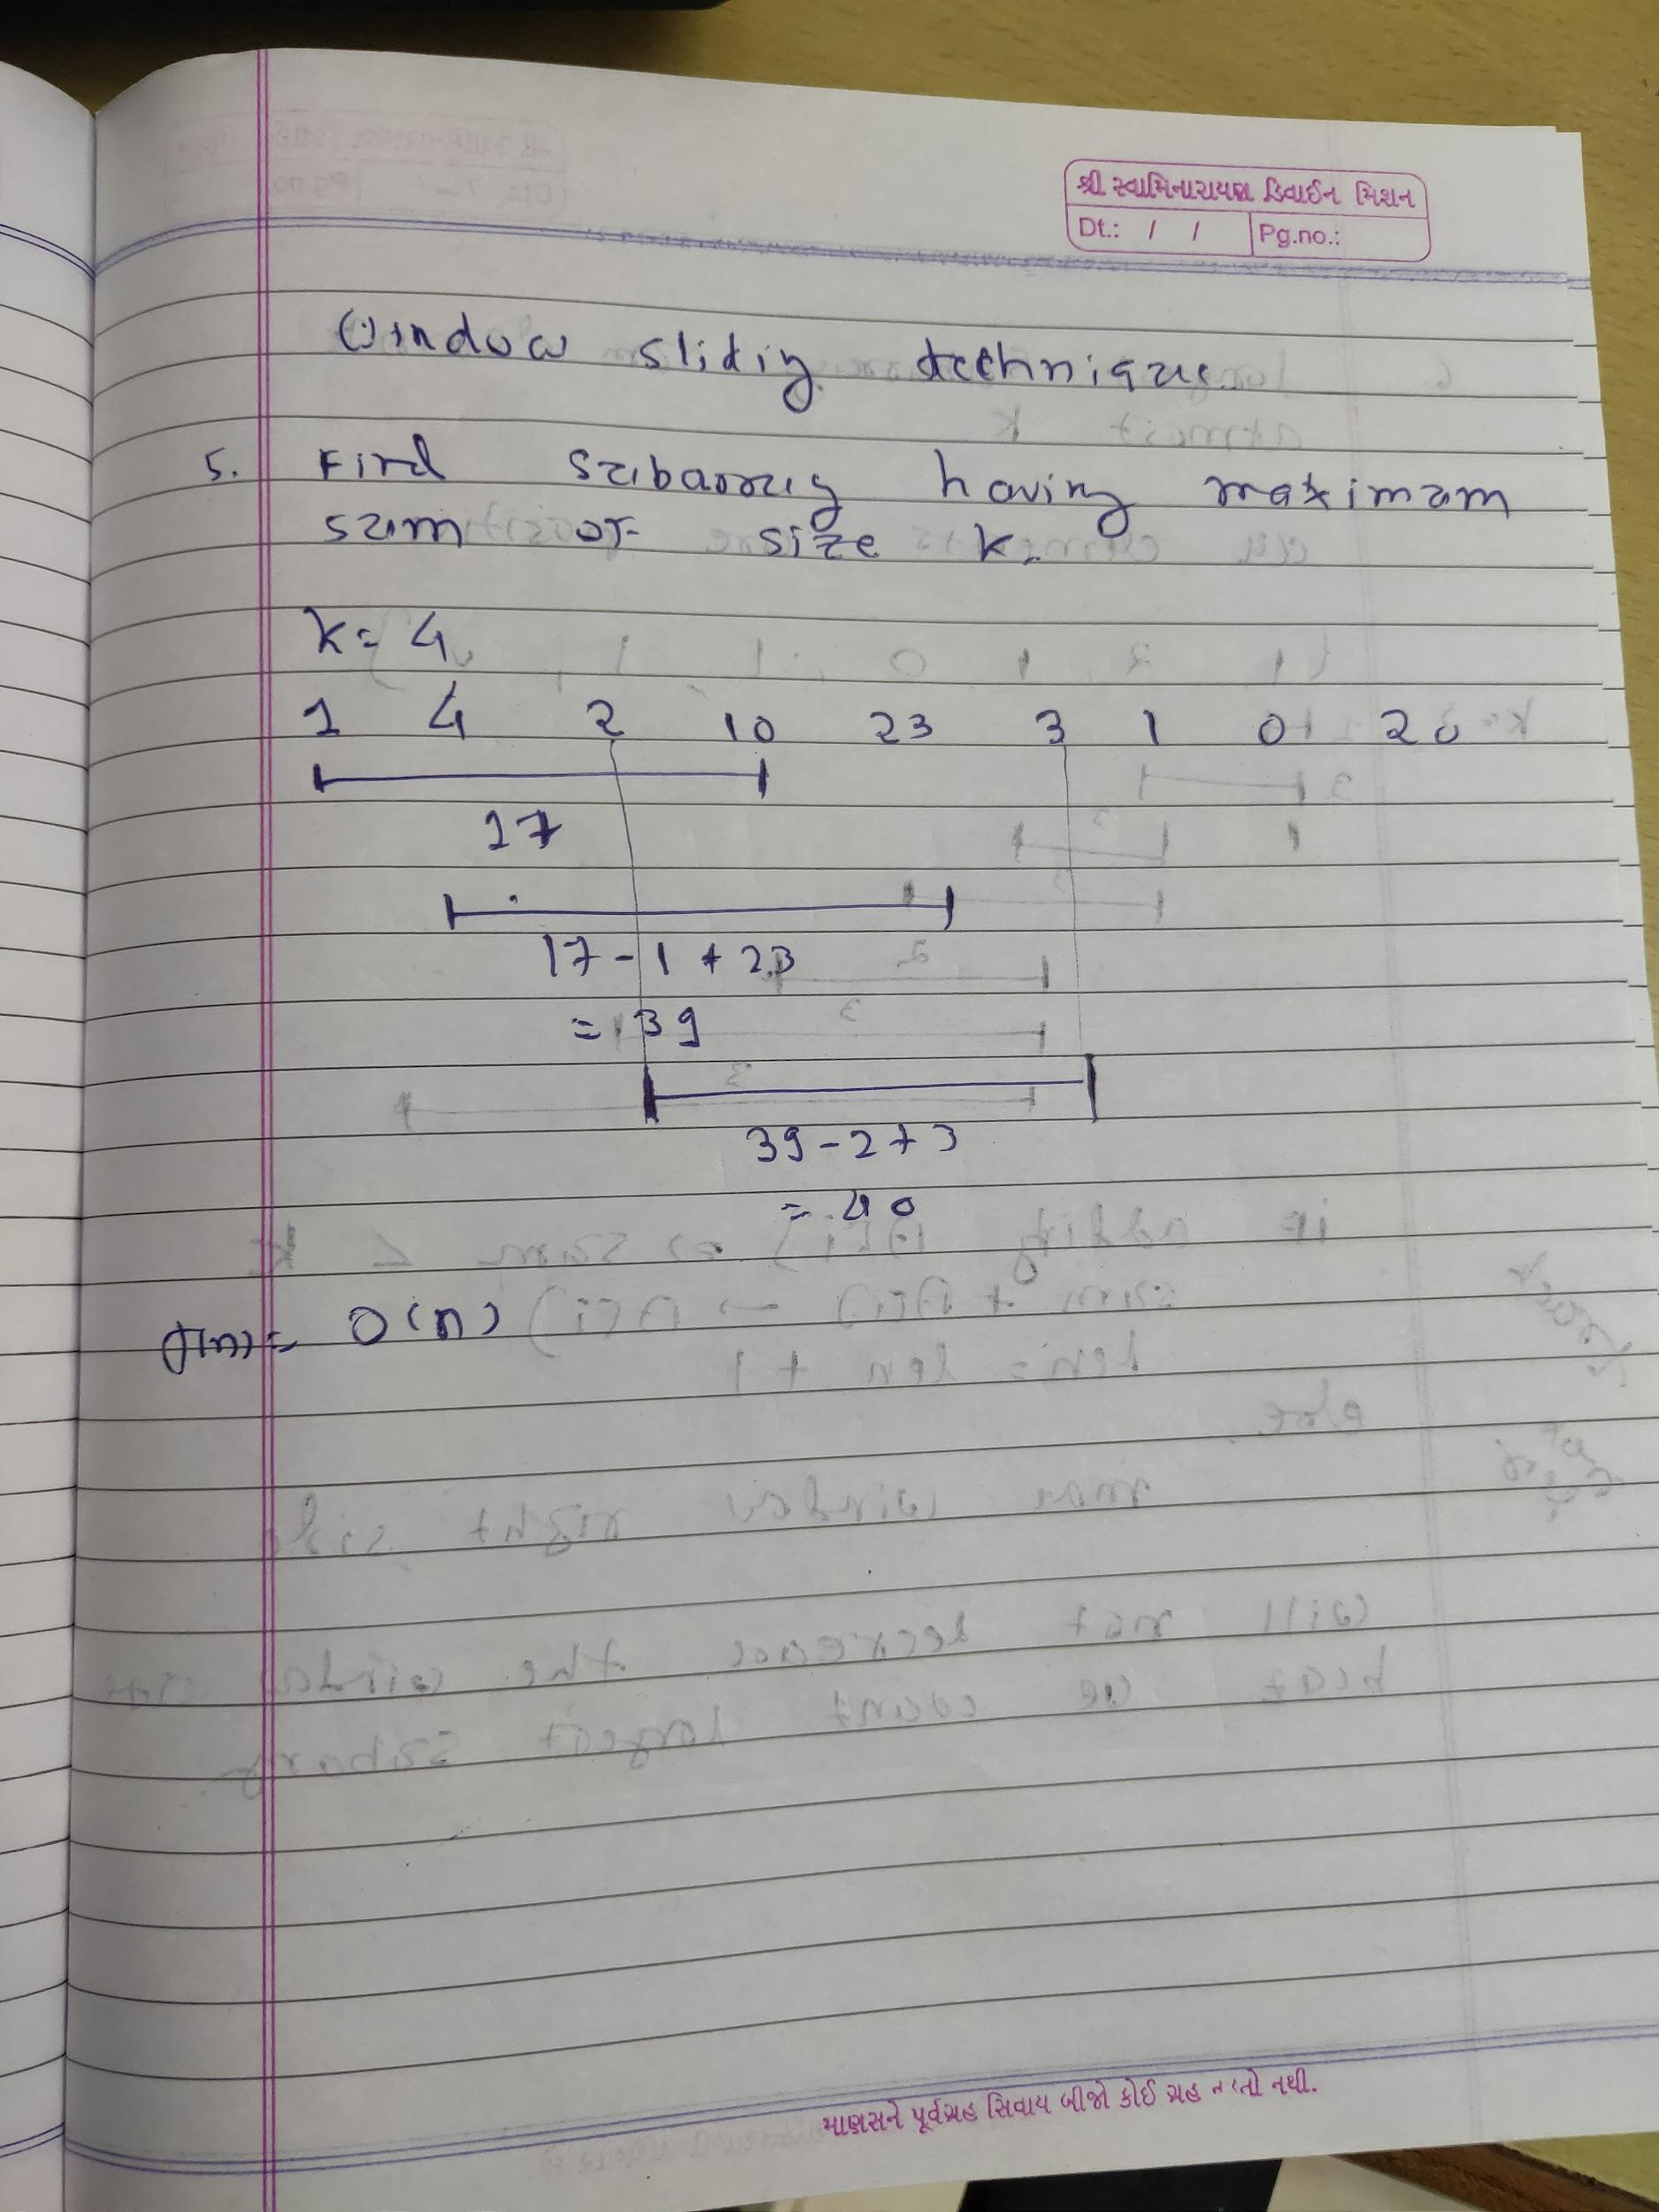 શ્રી સ્વામિનારાયણ ડિવાઈન મિશન
Dt.: / / Pg.no.:
Window sliding technique
5. Find subarray having maximum
sum of size k.
k = 4
1 4 2 10 23 3 1 0 20
17
17 - 1 + 23
= 39
39 - 2 + 3
= 40
T(n) = O(n)
માણસને પૂર્વગ્રહ સિવાય બીજો કોઈ ગ્રહ નડતો નથી.